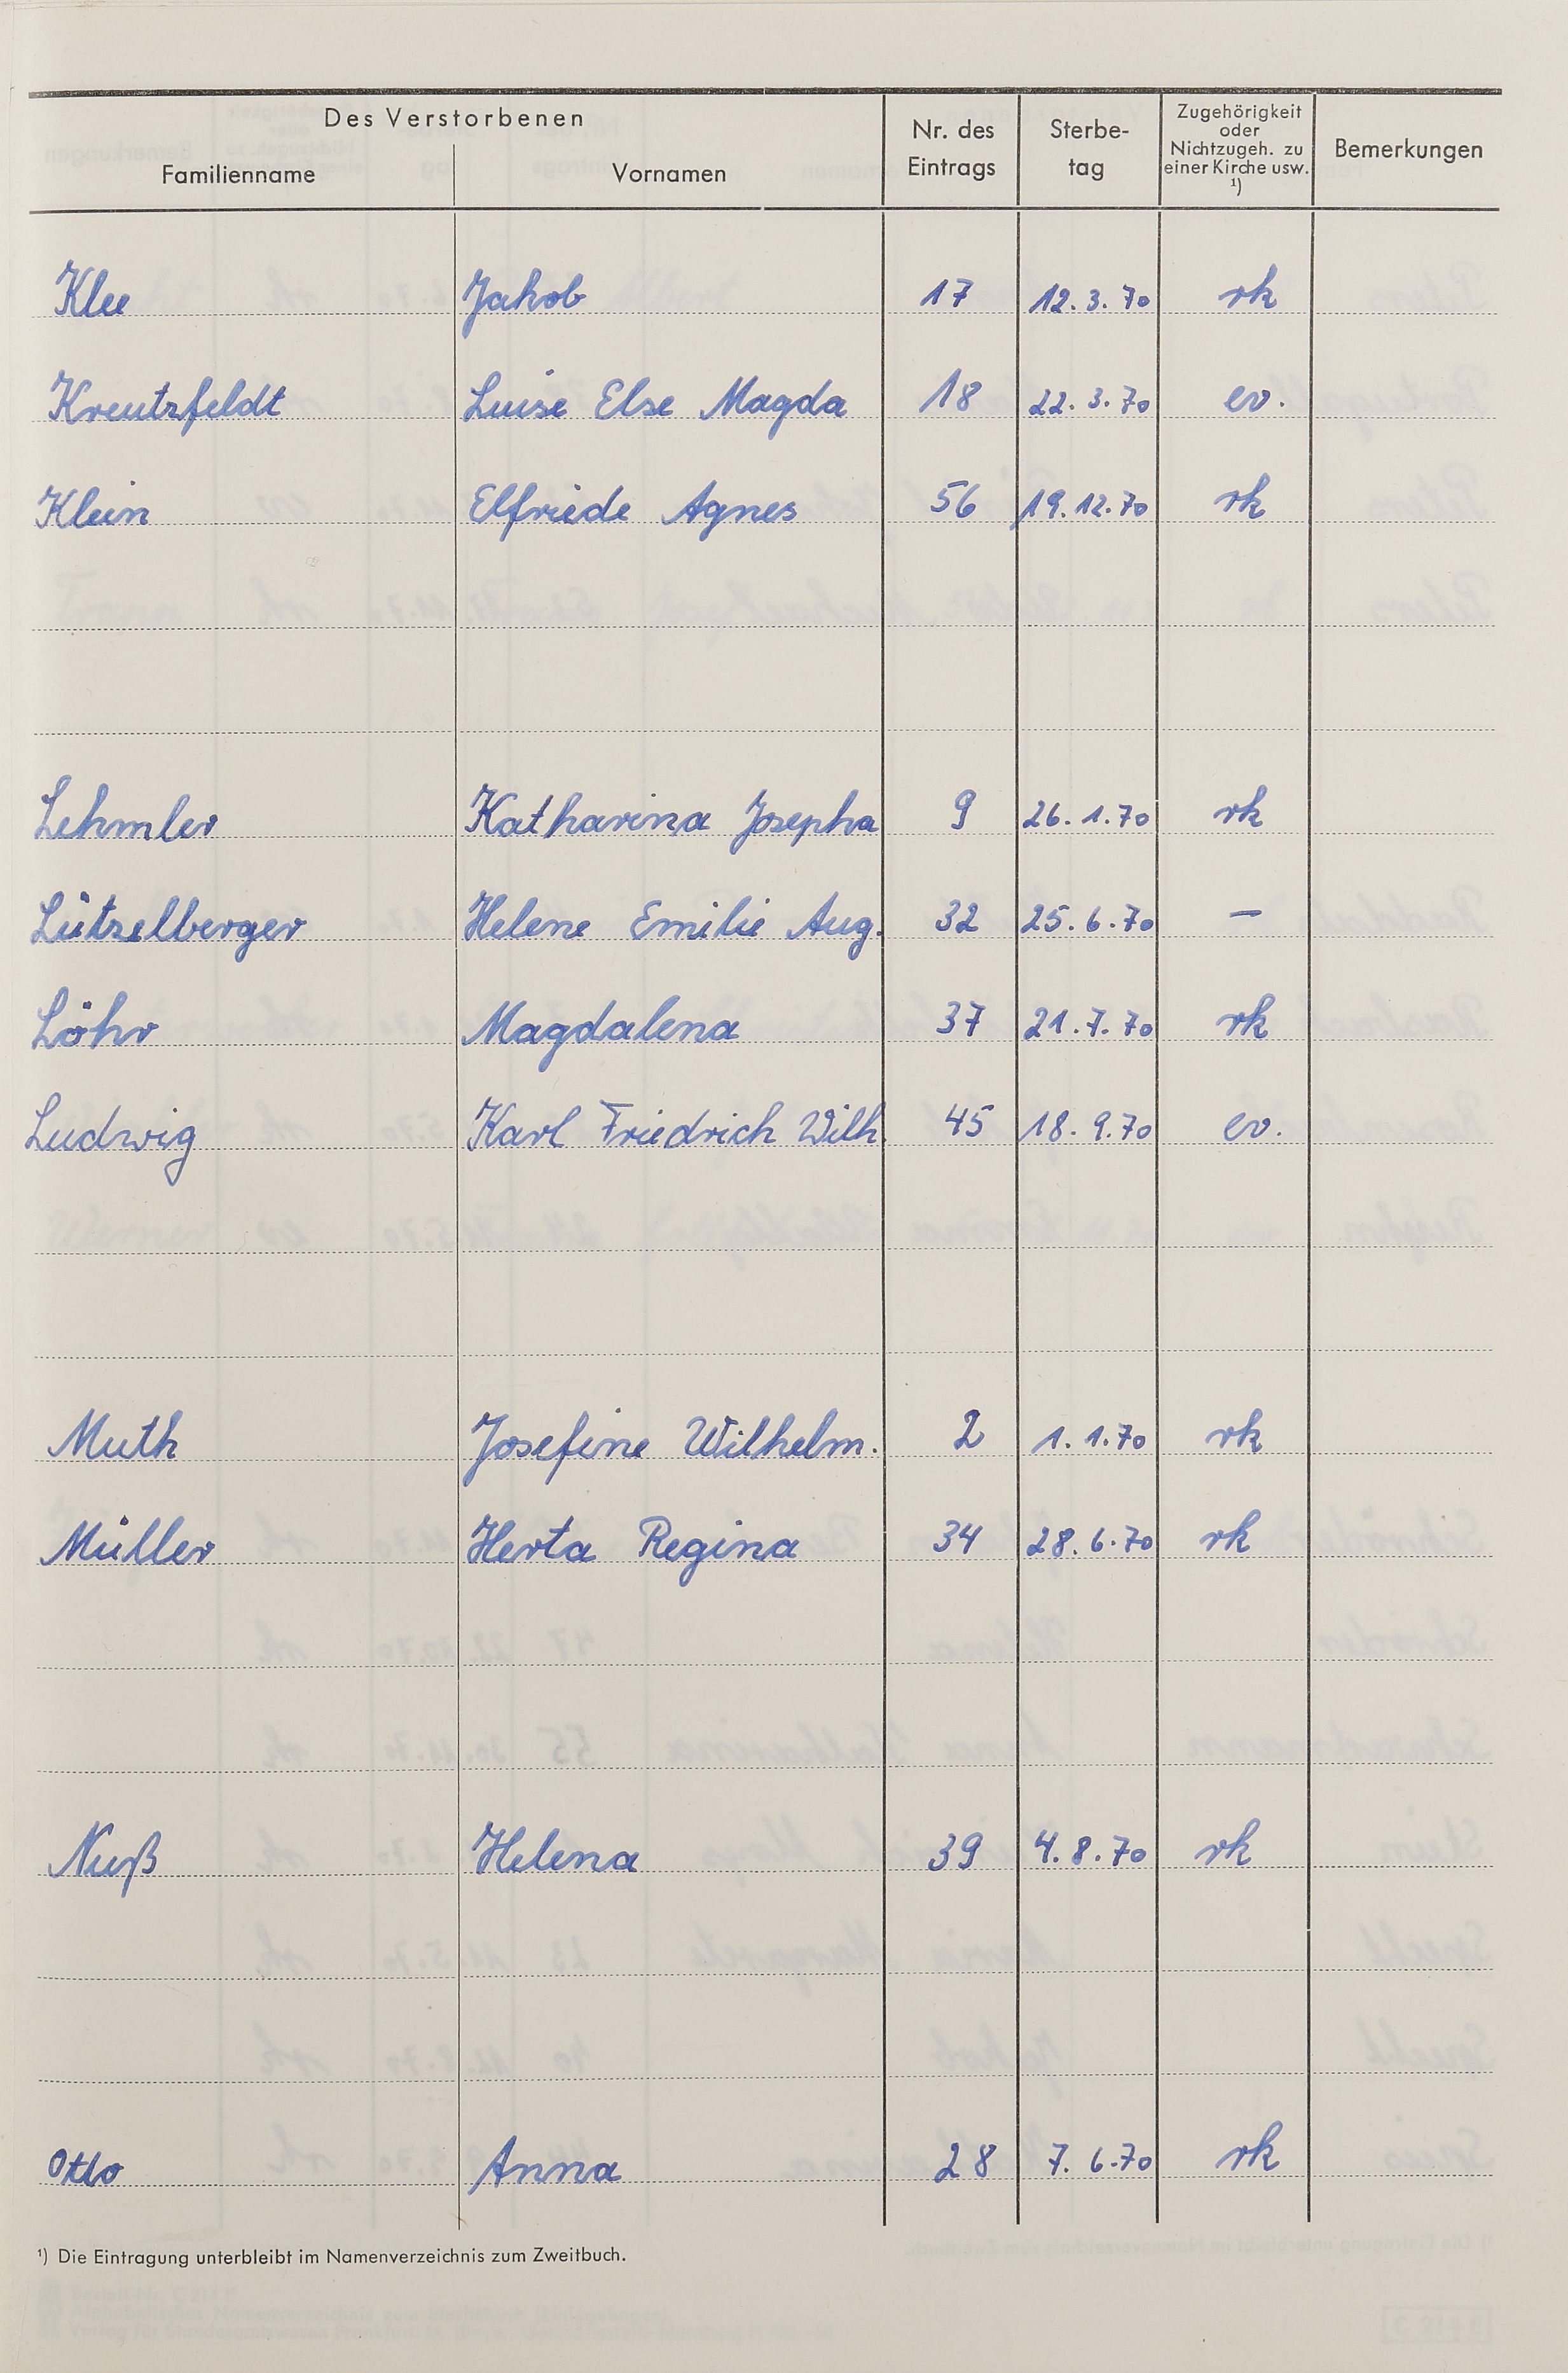 Des Verstorbenen
Familienname Vornamen Nr. des Eintrags Sterbe-tag Zugehörigkeit oder Nichtzugeh. zu einer Kirche usw. ¹) Bemerkungen
Klee Jakob 17 12.3.70 rk
Kreutzfeldt Luise Else Magda 18 22.3.70 ev.
Klein Elfriede Agnes 56 19.12.70 rk
Lehmler Katharina Josepha 9 26.1.70 rk
Lützelberger Helene Emilie Aug. 32 25.6.70 —
Löhr Magdalena 37 21.7.70 rk
Ludwig Karl Friedrich Wilh. 45 18.9.70 ev.
Muth Josefine Wilhelm. 2 1.1.70 rk
Müller Herta Regina 34 28.6.70 rk
Nuß Helena 39 4.8.70 rk
Otto Anna 28 7.6.70 rk
¹) Die Eintragung unterbleibt im Namenverzeichnis zum Zweitbuch.